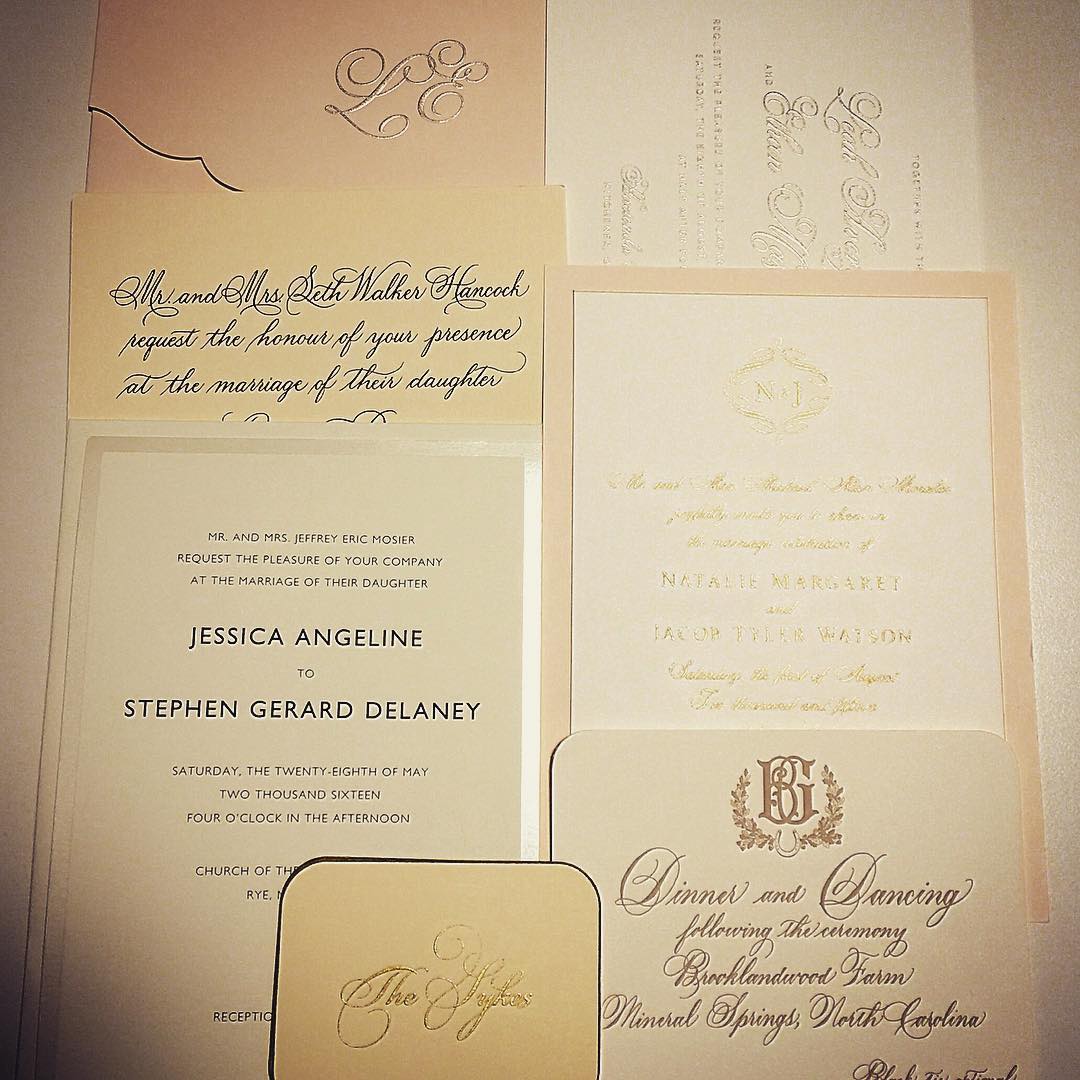 LE
TOGETHER WITH
Leah
AND
Ethan
REQUEST THE PLEASURE OF YOUR
SATURDAY THE
Mr. and Mrs. Seth Walker Hancock
request the honour of your presence
at the marriage of their daughter
N&J
joyfully invite you to share in
the marriage celebration of
NATALIE MARGARET
and
JACOB TYLER WATSON
Saturday, the first of August
Two thousand and fifteen
MR. AND MRS. JEFFREY ERIC MOSIER
REQUEST THE PLEASURE OF YOUR COMPANY
AT THE MARRIAGE OF THEIR DAUGHTER
JESSICA ANGELINE
TO
STEPHEN GERARD DELANEY
SATURDAY, THE TWENTY-EIGHTH OF MAY
TWO THOUSAND SIXTEEN
FOUR O'CLOCK IN THE AFTERNOON
CHURCH OF THE
RYE, N
RECEPTIO
The Sykes
BG
Dinner and Dancing
following the ceremony
Brocklandwood Farm
Mineral Springs, North Carolina
Black tie optional